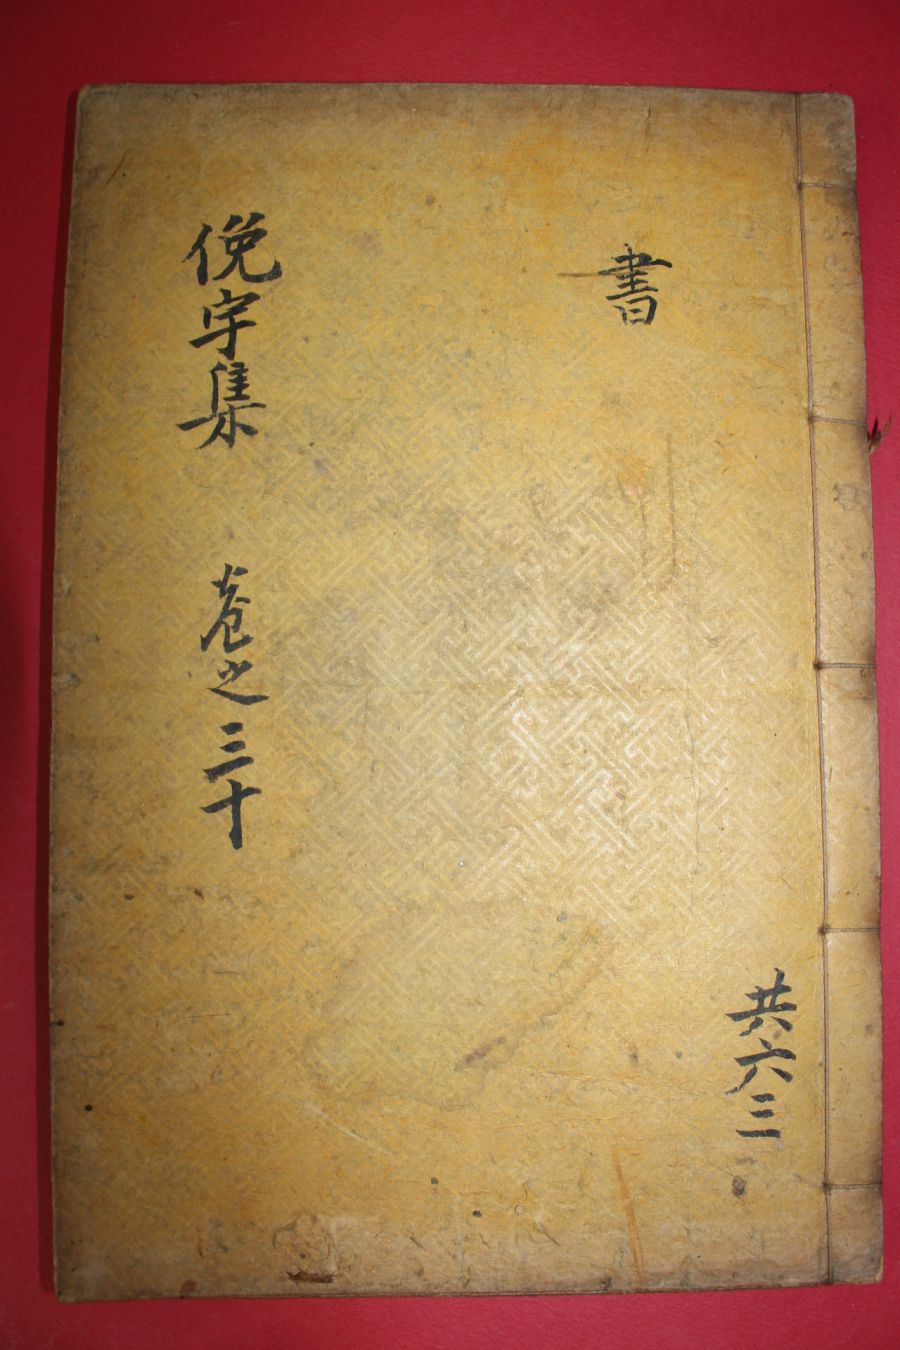 書
俛宇集 卷之三十
共六三